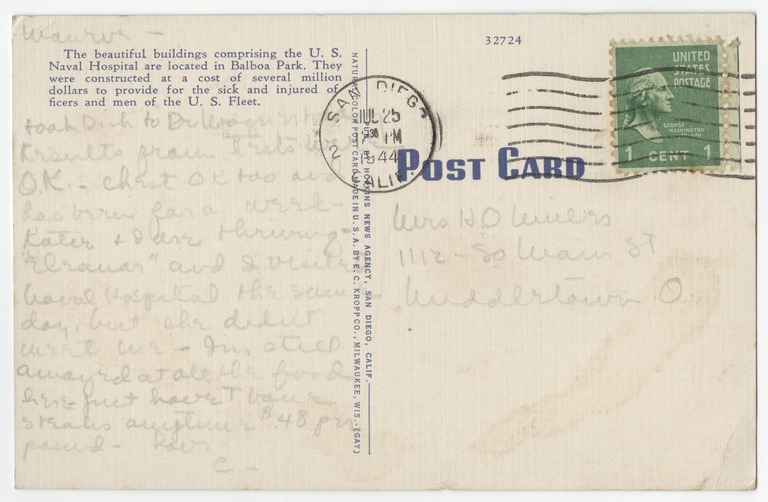 The beautiful buildings comprising the U. S.
Naval Hospital are located in Balboa Park. They
were constructed at a cost of several million
dollars to provide for the sick and injured of-
ficers and men of the U. S. Fleet.
took Dick to Dr
Results from Tests were
O.K. - chest OK too and
has been for a week -
Katie + I are thriving -
"Eleanor" and I visited
Naval Hospital the same
day, but she didn't
meet me - I'm still
amazed at all the food
here just haven't
steaks anytime $.48 per
pound - Love
C -
NATURAL COLOR POST CARD MADE IN U. S. A. BY E. C. KROPP CO., MILWAUKEE, WIS. (GAY)
BY HOPKINS NEWS AGENCY, SAN DIEGO, CALIF.
32724
SAN DIEGO
2
JUL 25
30 PM
1944
CALIF.
UNITED
STATES
POSTAGE
GEORGE
WASHINGTON
1 CENT 1
POST CARD
Mrs H O
1112 - So Main St
Middletown O.